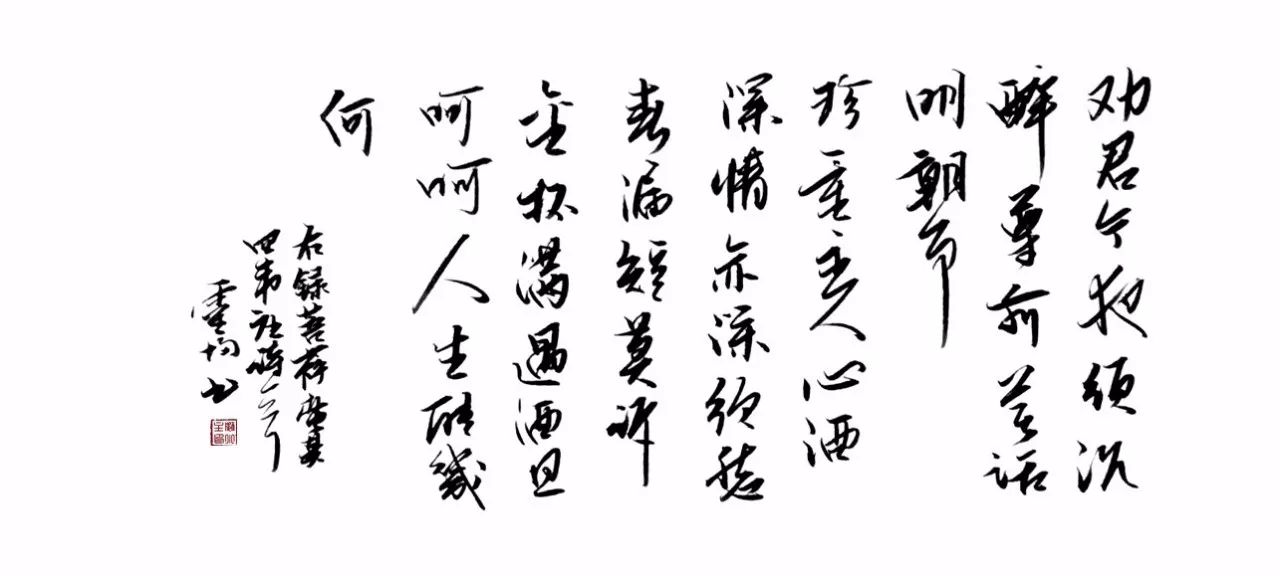 劝君今夜须沉
醉尊前莫话
明朝事
珍重主人心酒
深情亦深须愁
春漏短莫诉
金杯满遇酒且
呵呵人生能幾
何
右録菩萨蛮其
四韦庄诗一首
均书